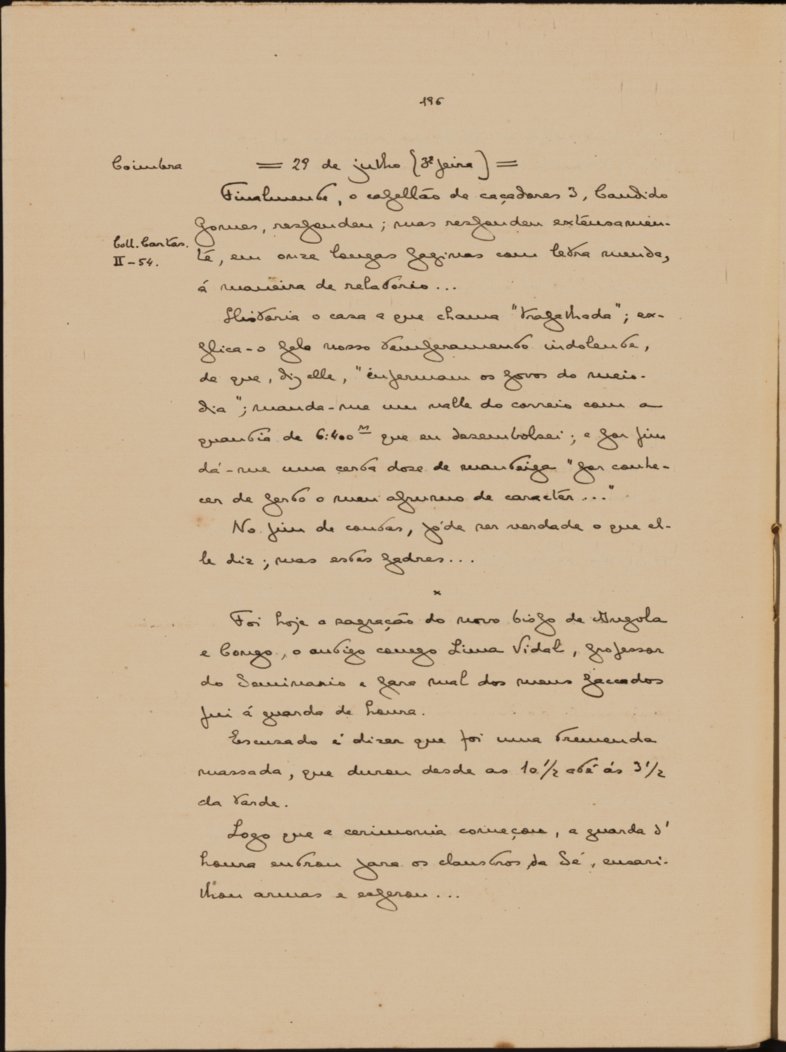 196
Coimbra = 29 de julho (3ª feira) =
Finalmente, o capellão de caçadores 3, Candido
Gomes, respondeu; mas respondeu extensamen-
Coll. Cartas.
II – 54.
te, em onze longas paginas com letra meuda,
á maneira de relatorio...
Historia o caso a que chama "trapalhada"; ex-
plica-o pelo nosso temperamento indolente,
de que, diz elle, "enfermam os povos do meio-
dia"; manda-me um valle do correio com a
quantia de 6:400 rs que eu desembolsei; e por fim
dá-me uma certa dose de manteiga "por conhe-
cer de perto o meu aprumo de caractér..."
No fim de contas, póde ser verdade o que el-
le diz; mas estes padres...
×
Foi hoje a sagração do novo bispo de Angola
e Congo, o antigo conego Lima Vidal, professor
do Seminario e para mal dos meus peccados
fui á guarda de honra.
Escusado é dizer que foi uma tremenda
massada, que durou desde as 10 1/2 até ás 3 1/2
da tarde.
Logo que a cerimonia começou, a guarda d'
honra entrou para os claustros da Sé, ensari-
lhou armas e esperou...